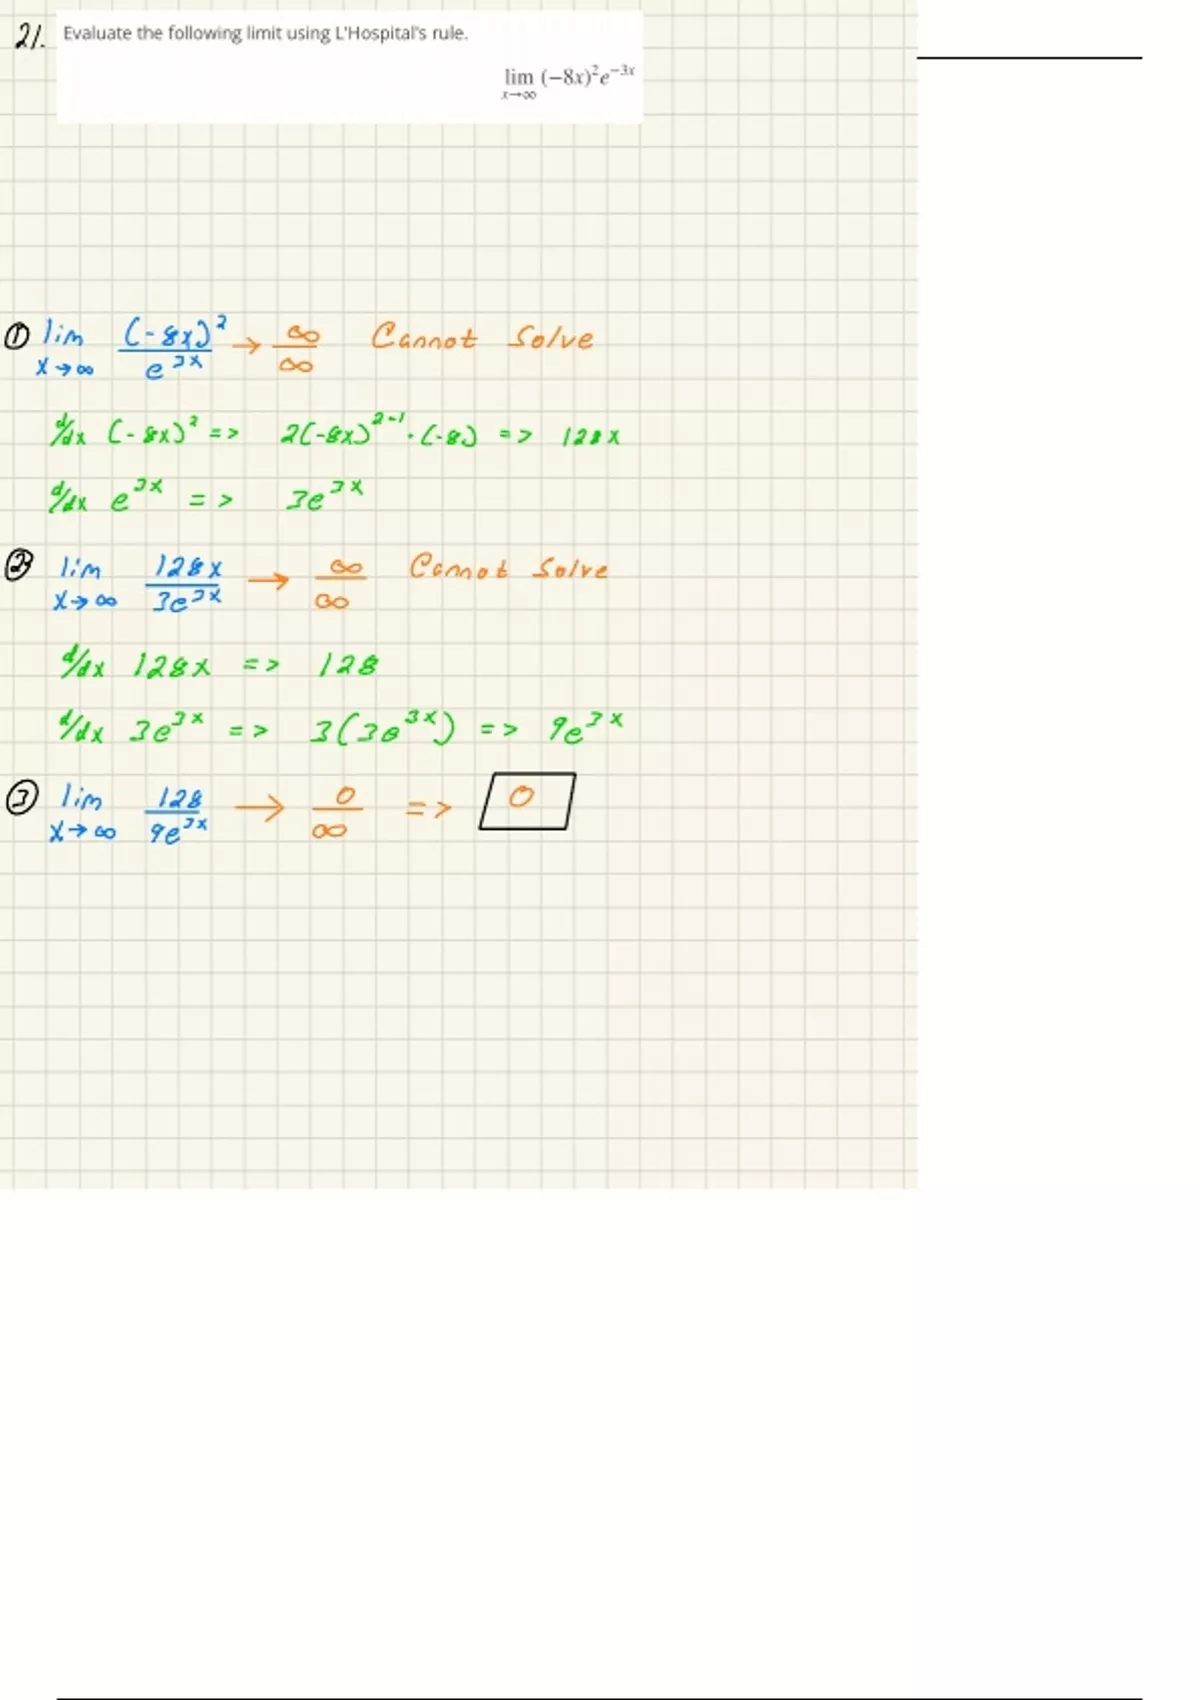 21. Evaluate the following limit using L'Hospital's rule.
lim x→∞ (−8x)²e⁻³ˣ
① lim x→∞ (-8x)² / e³ˣ → ∞/∞ Cannot Solve
d/dx (-8x)² => 2(-8x)²⁻¹ · (-8) => 128x
d/dx e³ˣ => 3e³ˣ
② lim x→∞ 128x / 3e³ˣ → ∞/∞ Cannot Solve
d/dx 128x => 128
d/dx 3e³ˣ => 3(3e³ˣ) => 9e³ˣ
③ lim x→∞ 128 / 9e³ˣ → 0/∞ => 0